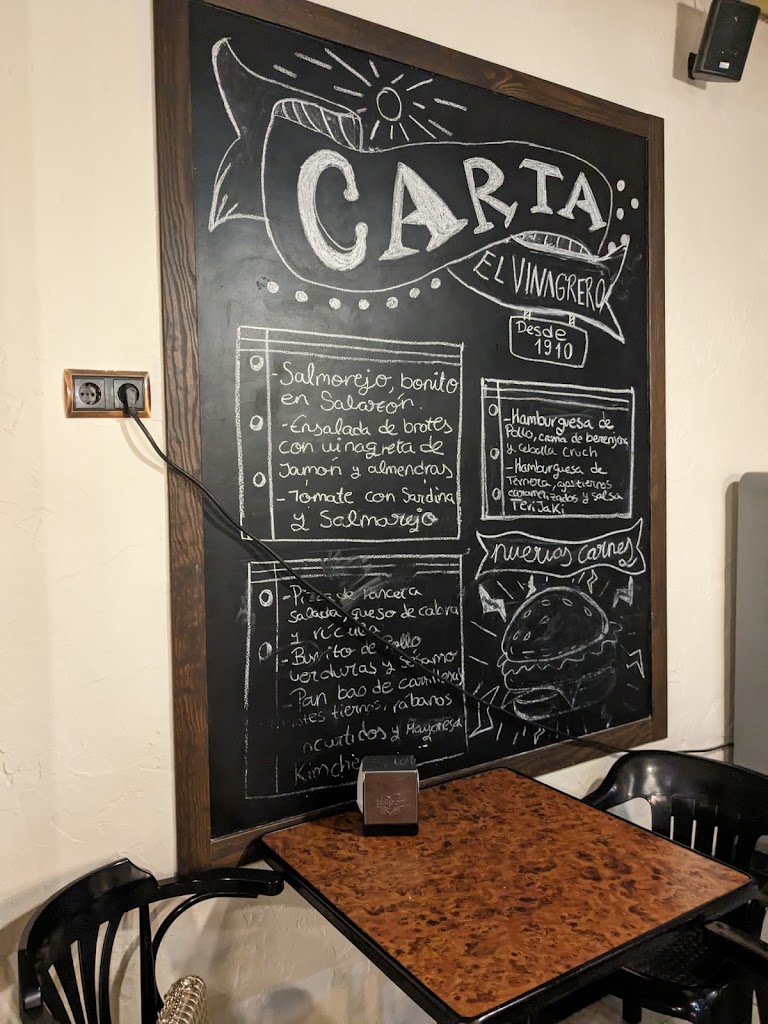 CARTA
EL VINAGRERO
Desde
1910
- Salmorejo, bonito
en Salazón.
- Ensalada de brotes
con vinagreta de
Jamón y almendras
- Tómate con Sardina
y Salmorejo
- Hamburguesa de
Pollo, crema de berenjena
y Cebolla Cruch
- Hamburguesa de
Ternera, ajos tiernos
caramelizados y salsa
TeriJaKi
nuevas carnes
- Pizza de Panceta
salada, queso de cabra
y rúcula
- Burrito de Pollo
verduras y Sésamo
- Pan bao de carrilleras
tiernos, rabanos
ncurtidos y Mayonesa
Kimchie